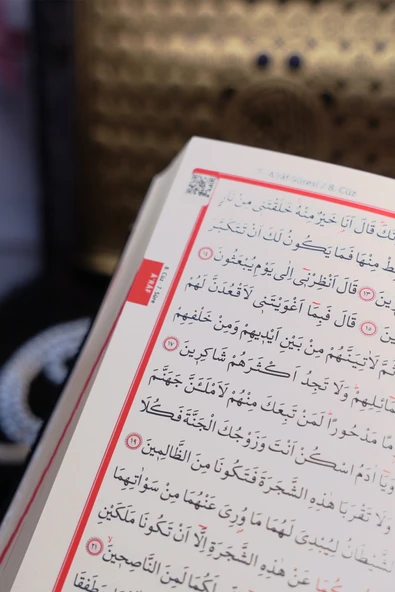 7. A'râf Sûresi / 8. Cüz
8. Cüz / 7. Sûre
A'RÂF
قَالَ اَنَا۬ خَيْرٌ مِنْهُ خَلَقْتَنٖى مِنْ نَارٍ
مِنْهَا فَمَا يَكُونُ لَكَ اَنْ تَتَكَبَّرَ
١٣ قَالَ اَنْظِرْنٖى اِلٰى يَوْمِ يُبْعَثُونَ ١٤
١٥ قَالَ فَبِمَا اَغْوَيْتَنٖى لَاَقْعُدَنَّ لَهُمْ
ثُمَّ لَاٰتِيَنَّهُمْ مِنْ بَيْنِ اَيْدٖيهِمْ وَمِنْ خَلْفِهِمْ
وَلَا تَجِدُ اَكْثَرَهُمْ شَاكِرٖينَ ١٧
مَدْحُورًا لَمَنْ تَبِعَكَ مِنْهُمْ لَاَمْلَئَنَّ جَهَنَّمَ
وَيَا اٰدَمُ اسْكُنْ اَنْتَ وَزَوْجُكَ الْجَنَّةَ فَكُلَا
وَلَا تَقْرَبَا هٰذِهِ الشَّجَرَةَ فَتَكُونَا مِنَ الظَّالِمٖينَ ١٩
الشَّيْطَانُ لِيُبْدِىَ لَهُمَا مَا وُرِىَ عَنْهُمَا مِنْ سَوْاٰتِهِمَا
عَنْ هٰذِهِ الشَّجَرَةِ اِلَّا اَنْ تَكُونَا مَلَكَيْنِ
لَكُمَا لَمِنَ النَّاصِحٖينَ ٢١
وَطَفِقَا